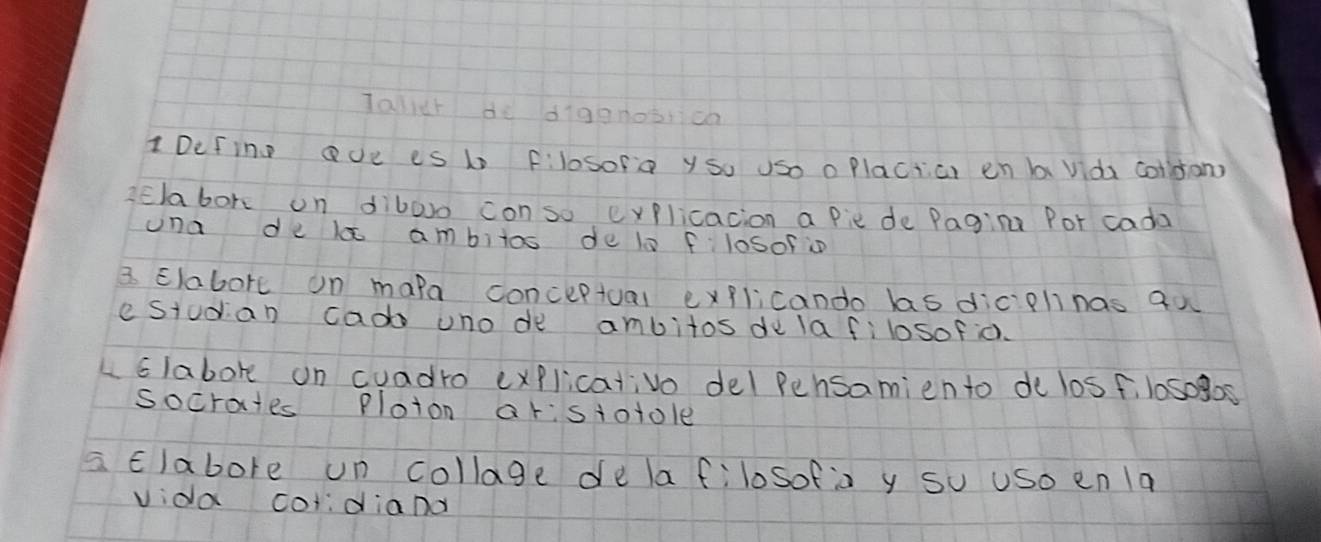 Taller de diagnostico
1 Define que es la filosofia y su uso o practica en la vida cotidiana
2 Elabore un dibujo con su explicacion a pie de pagina por cada
una de los ambitos de la filosofia
3. Elabore un mapa conceptual explicando las diciplinas qu
estudian cada uno de ambitos de la filosofia.
4 Elabore un cuadro explicativo del pensamiento de los filosogos
socrates ploton aristotole
5 Elabore un collage de la filosofia y su uso en la
vida cotidiana